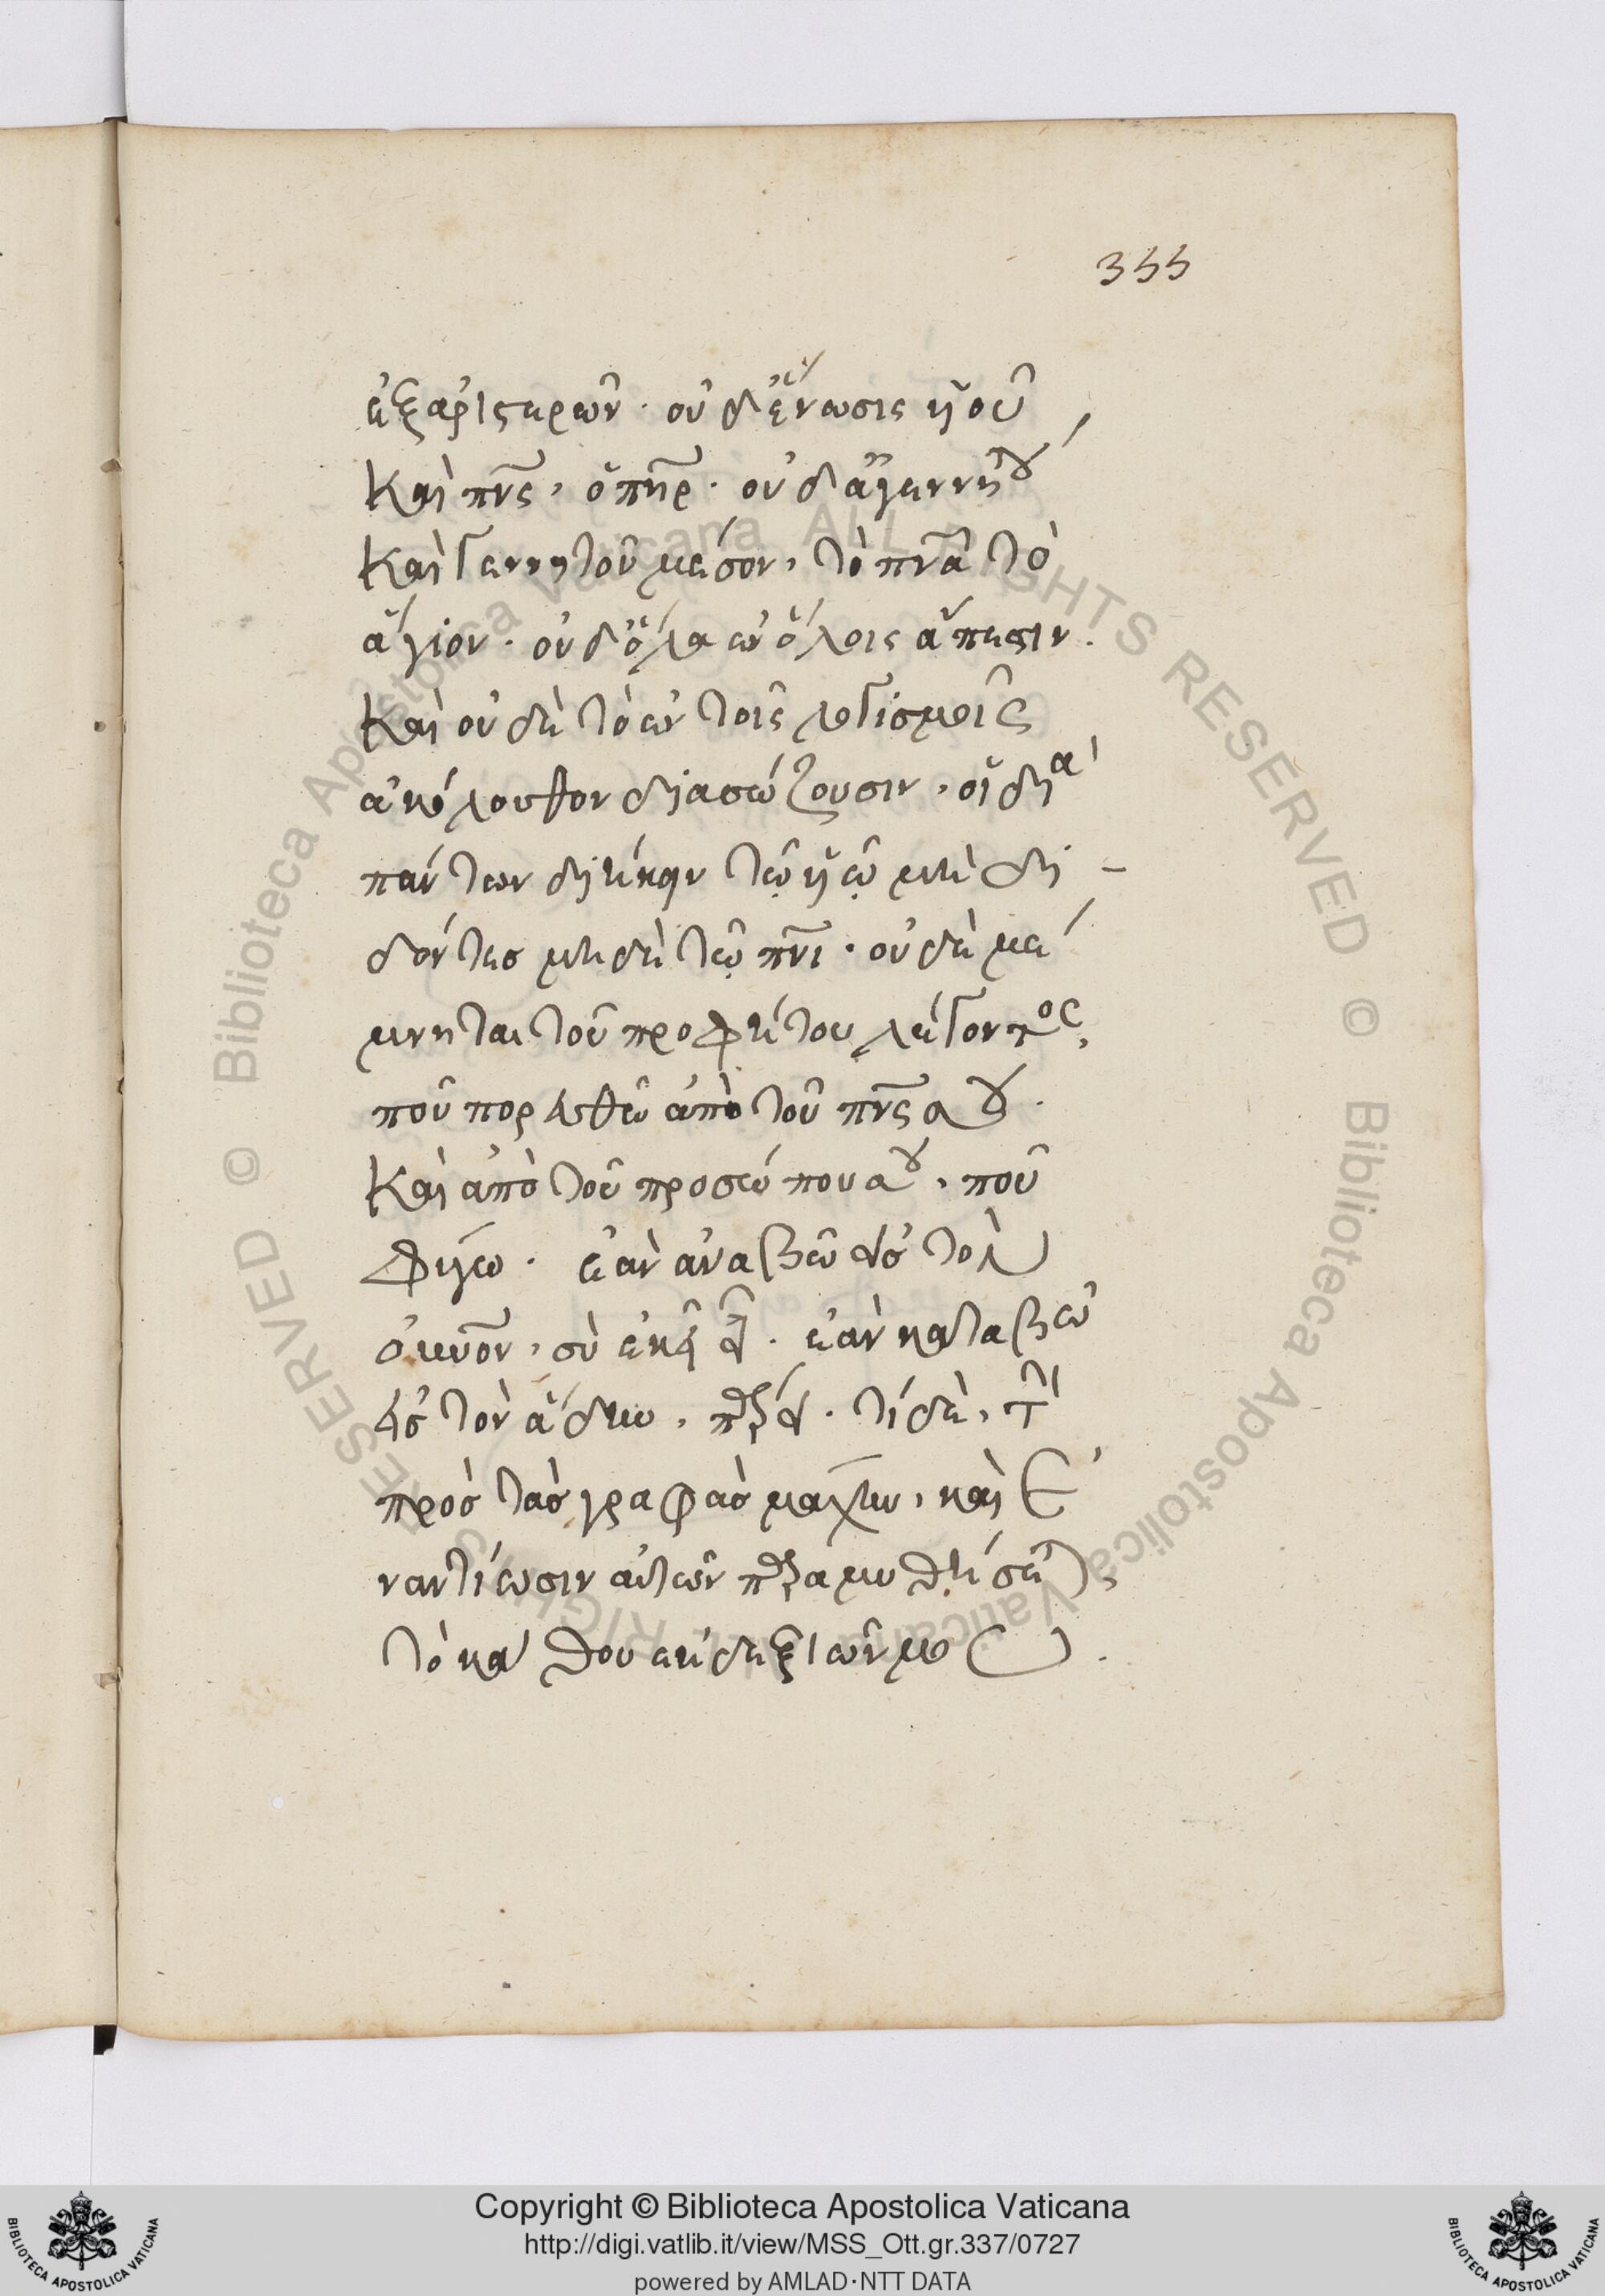 355
ἐξαρἰστερῶν. οὐδἕνωσις ὑῖοῦ
καὶ πνς, ὁ πηρ. οὐδἀγεννήτου
καὶ γεννητοῦ μέσον, τὸ πνα τὸ
ἅγιον. οὐδὅλα ἐν ὅλοις ἄπεισιν.
καὶ οὐδὲ τὸ ἐν τοῖς λογισμοῖς
ἀκόλουθον διασώζουσιν, οἱ διὰ
πάντων διήκειν τῶ ὑῶ μὴ δι-
δόντες μηδὲ τῶ πνι. οὐδὲ μέ
μνηται τοῦ προφήτου λέγοντος,
ποῦ πορευθῶ ἀπὸ τοῦ πνς σου.
καὶ ἀπὸ τοῦ προσώπου σου, ποῦ
φύγω. ἐὰν ἀναβῶ εἰς τὸν
οὐνον, σὺ ἐκεῖ εἶ. ἐὰν καταβῶ
εἰς τὸν ἅδην, πάρει. τί δὲ, τὴν
πρὸς τὰς γραφὰς μάχην, καὶ ἐ
ναντίωσιν αὐτῶν παραμυθήσεται,
τὸ κάθου ἐκ δεξιῶν μου.
Copyright © Biblioteca Apostolica Vaticana
http://digi.vatlib.it/view/MSS_Ott.gr.337/0727
powered by AMLAD·NTT DATA
BIBLIOTECA APOSTOLICA VATICANA
BIBLIOTECA APOSTOLICA VATICANA
© Biblioteca Apostolica Vaticana ALL RIGHTS RESERVED © Biblioteca Apostolica Vaticana ALL RIGHTS RESERVED